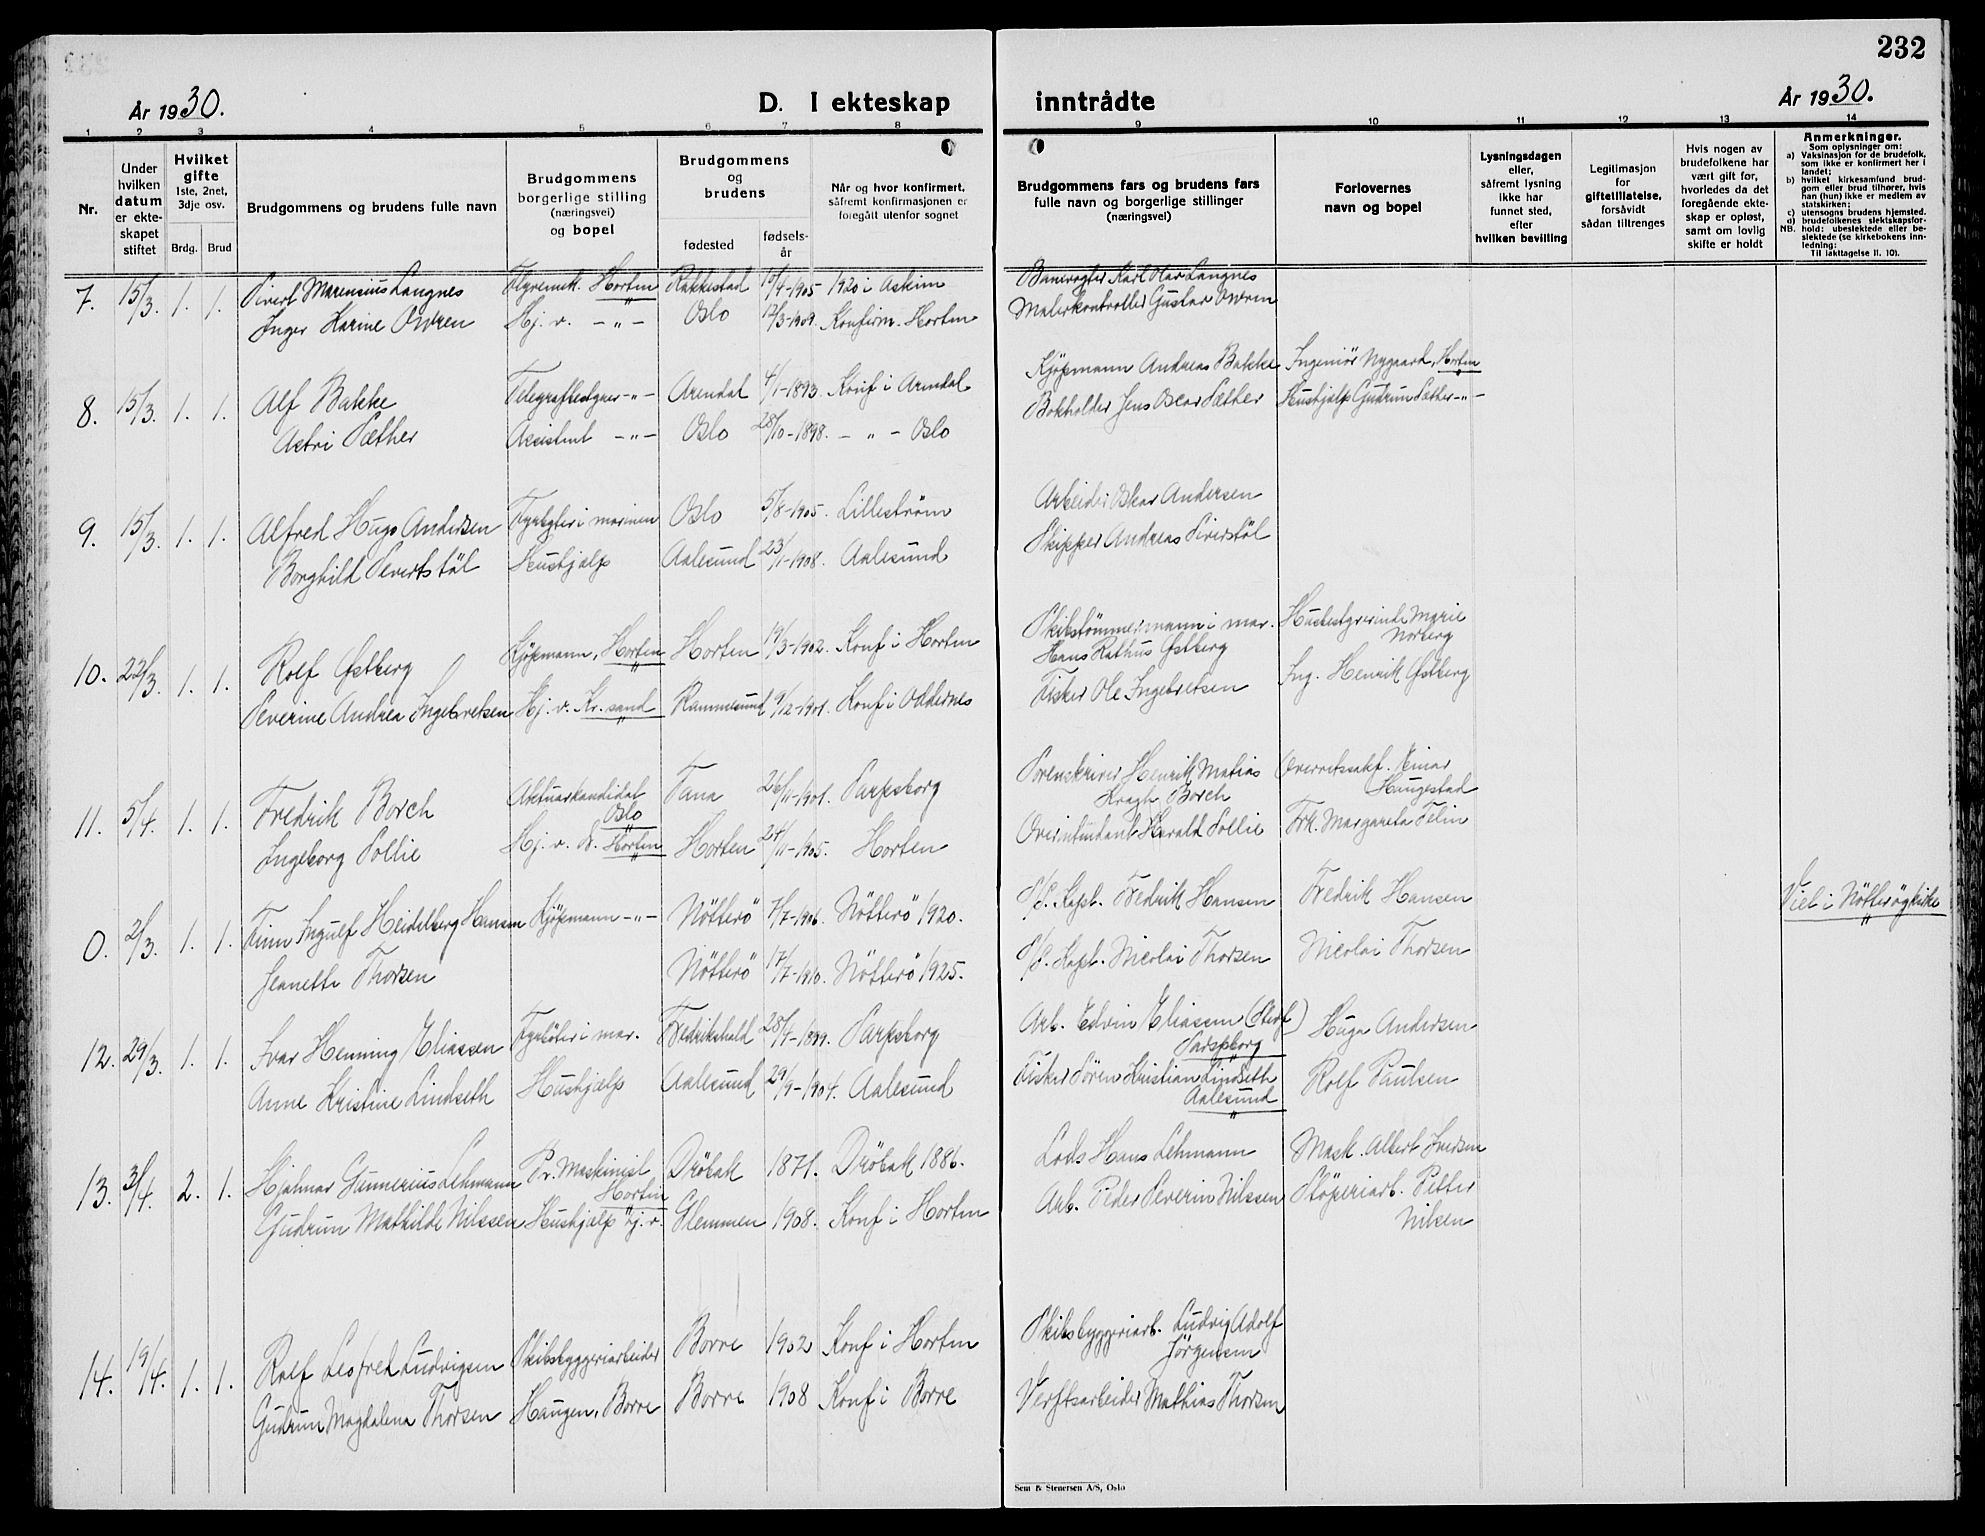 232
År 1930.
D. I ekteskap inntrådte
År 1930.
1 2 3 4 5 6 7 8 9 10 11 12 13 14
Nr.
Under
hvilken
datum
er ekte-
skapet
stiftet
Hvilket
gifte
1ste, 2net,
3dje osv.
Brdg. Brud
Brudgommens og brudens fulle navn
Brudgommens
borgerlige stilling
(næringsvei)
og bopel
Brudgommens
og
brudens
fødested
fødsels-
år
Når og hvor konfirmert,
såfremt konfirmasjonen er
foregått utenfor sognet
Brudgommens fars og brudens fars
fulle navn og borgerlige stillinger
(næringsvei)
Forlovernes
navn og bopel
Lysningsdagen
eller,
såfremt lysning
ikke har
funnet sted,
efter
hvilken bevilling
Legitimasjon
for
giftetillatelse,
forsåvidt
sådan tiltrenges
Hvis nogen av
brudefolkene har
vært gift før,
hvorledes da det
foregående ekte-
skap er opløst,
samt om lovlig
skifte er holdt
Anmerkninger.
Som oplysninger om:
a) Vaksinasjon for de brudefolk,
som ikke er konfirmert her i
landet;
b) hvilket kirkesamfund brud-
gom eller brud tilhører, hvis
han (hun) ikke er medlem av
statskirken;
c) utensogns brudens hjemsted.
d) brudefolkenes slektskapsfor-
NB. hold: ubeslektede eller be-
slektede (se kirkebokens inn-
ledning;
Til iakttagelse II. 10).
7. 15/3. 1. 1. Sivert Marensius Langnes Flyvemek. Horten Rakkestad 1905 1920 i Askim Banevogter Karl Olav Langnes
Inger Karine Owren Hj. v. -"- Oslo 12/3-1909. Konfirm. Horten Malerkontrollør Gustav Owren
8. 15/3. 1. 1. Alf Bakke Telegrafbestyrer -"- Arendal 4/1-1893 Konf i Arendal Kjøpmann Andreas Bakke Ingeniør Nygaard, Horten
Astri Sæther Assistent -"- Oslo 28/10-1898. -"- Oslo Bokholder Jens Oscar Sæther Hushjelp Gudrun Sæther -"-
9. 15/3. 1. 1. Alfred Hugo Andersen Fyrbøter i marinen Oslo 5/8-1905. Lillestrøm Arbeider Oskar Andersen
Borghild Severtstøl Hushjælp Aalesund 23/1-1908. Aalesund Skipper Andreas Siverstøl
10. 22/3. 1. 1. Rolf Østberg Kjøpmann, Horten Horten 19/3-1902. Konf i Horten Skibstømmermann i mar. Husbestyrerinde Marie
Norberg
Hans Rathus Østberg
Severine Andrea Ingebretsen Hj. v. Kr. sand Ramnesund 9/12-1901. Konf i Oddernes Fisker Ole Ingebretsen Ing. Henrik Østberg
11. 5/4. 1. 1. Fredrik Borch Aktuarkandidat Tana 26/11-1901. Sarpsborg Sorenskriver Henrik Matias Overretssakf. Einar
Oslo Kragh Borch Haugestad
Ingeborg Sollie Hj. v. Horten Horten 24/11-1905. Horten Overintendant Harald Sollie Frk. Margareta Felin
0. 2/3. 1. 1. Finn Ingulf Heidelberg Hansen Kjøpmann -"- Nötterö 7/7-1906. Nötterö 1920. Kapt. Fredrik Hansen Fredrik Hansen Viet i Nötterö kirke
Jeanette Thorsen Nötterö 17/7-1910. Nötterö 1925. Kapt. Nicolai Thorsen Nicolai Thorsen
12. 29/3. 1. 1. Ivar Henning Eliassen Fyrbøter i mar. Fredrikshald 28/4-1899. Sarpsborg Arb. Edvin Eliassen Hugo Andersen
Sarpsborg
Anne Kristine Lindseth Hushjælp Aalesund 29/9-1904. Aalesund Fisker Sören Kristian Lindseth Rolf Paulsen
Aalesund
13. 3/4. 2. 1. Hjalmar Gunnerius Lehmann Pr. Maskinist Dröbak 1871. Dröbak 1886. Lods Hans Lehmann Mask. Albert Iversen
Horten
Gudrun Mathilde Nilssen Hushjælp Hj. v. Glemmen 1908. Konf i Horten Arb. Peder Severin Nilssen Støperiarb. Petter
Nilsen
14. 19/4. 1. 1. Rolf Leofred Ludvigsen Skibsbyggeriarbeider Borre 1902 Konf i Horten Skibsbyggeriarb. Ludvig Adolf
Jörgensen
Gudrun Magdalena Thorsen Haugen, Borre Borre 1908 Konf i Borre Verftsarbeider Mathias Thorsen
Sem & Stenersen A/S, Oslo